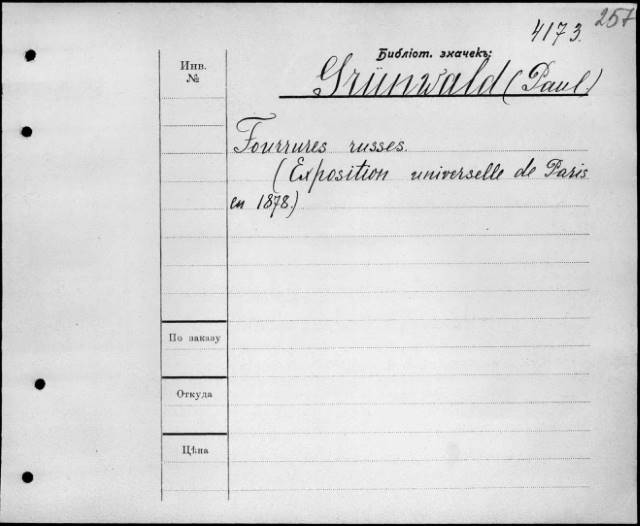 257
4173.
Библіот. значекъ:
Grünwald (Paul.)
Инв.
№
Fourrures russes.
(Exposition universelle de Paris
en 1878.)
По заказу
Откуда
Цѣна